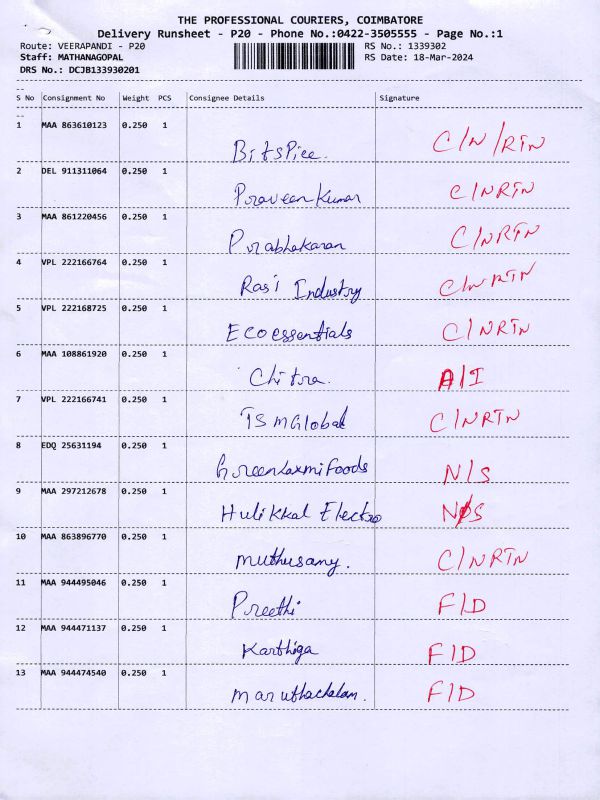 THE PROFESSIONAL COURIERS, COIMBATORE
Delivery Runsheet - P20 - Phone No.:0422-3505555 - Page No.:1
Route: VEERAPANDI - P20 RS No.: 1339302
Staff: MATHANAGOPAL RS Date: 18-Mar-2024
DRS No.: DCJB133930201
S No Consignment No Weight PCS Consignee Details Signature
1 MAA 863610123 0.250 1 BitsPice. C/N/RTN
2 DEL 911311064 0.250 1 Praveen Kumar C/NRTN
3 MAA 861220456 0.250 1 Prabhakaran C/NRTN
4 VPL 222166764 0.250 1 Rasi Industry C/NRTN
5 VPL 222168725 0.250 1 Ecoessentials C/NRTN
6 MAA 108861920 0.250 1 Chitra. A/I
7 VPL 222166741 0.250 1 TSMGlobal C/NRTN
8 EDQ 25631194 0.250 1 GreenLaxmiFoods N/S
9 MAA 297212678 0.250 1 Hulikkal Electro N/S
10 MAA 863896770 0.250 1 Muthusamy. C/NRTN
11 MAA 944495046 0.250 1 Preethi F/D
12 MAA 944471137 0.250 1 Karthiga F/D
13 MAA 944474540 0.250 1 Maruthachalam. F/D